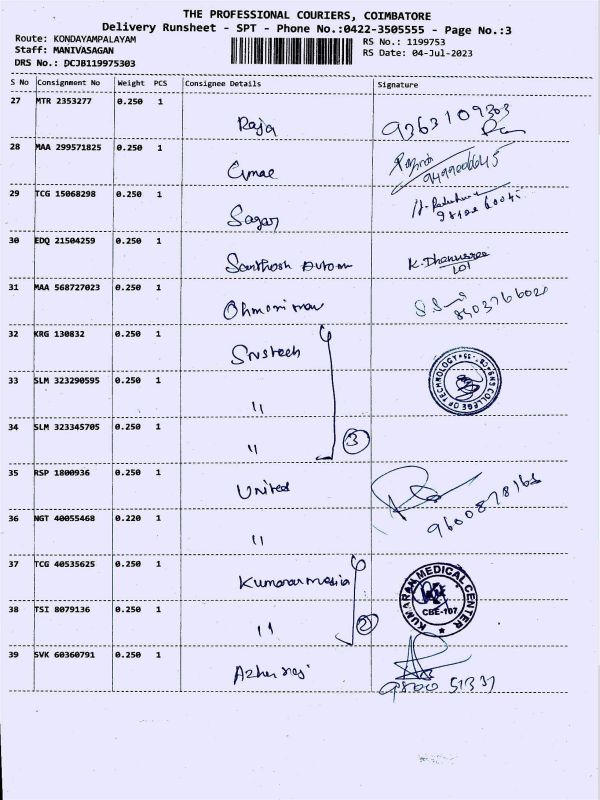 THE PROFESSIONAL COURIERS, COIMBATORE
Delivery Runsheet - SPT - Phone No.:0422-3505555 - Page No.:3
Route: KONDAYAMPALAYAM
Staff: MANIVASAGAN
DRS No.: DCJB119975303
RS No.: 1199753
RS Date: 04-Jul-2023
S No Consignment No Weight PCS Consignee Details Signature
27 MTR 2353277 0.250 1
Raja 9363109303
28 MAA 299571825 0.250 1
29 TCG 15068298 0.250 1
Sagar
30 EDQ 21504259 0.250 1
Santhosh K. Dhanussree
31 MAA 568727023 0.250 1
32 KRG 130832 0.250 1
Snstech
33 SLM 323290595 0.250 1
"
SNS COLLEGE OF TECHNOLOGY
34 SLM 323345705 0.250 1
" 3
35 RSP 1800936 0.250 1
United
36 NGT 40055468 0.220 1
" 9600878168
37 TCG 40535625 0.250 1
KUMARAN MEDICAL CENTER
CBE-107
38 TSI 8079136 0.250 1
" 2
39 SVK 60360791 0.250 1